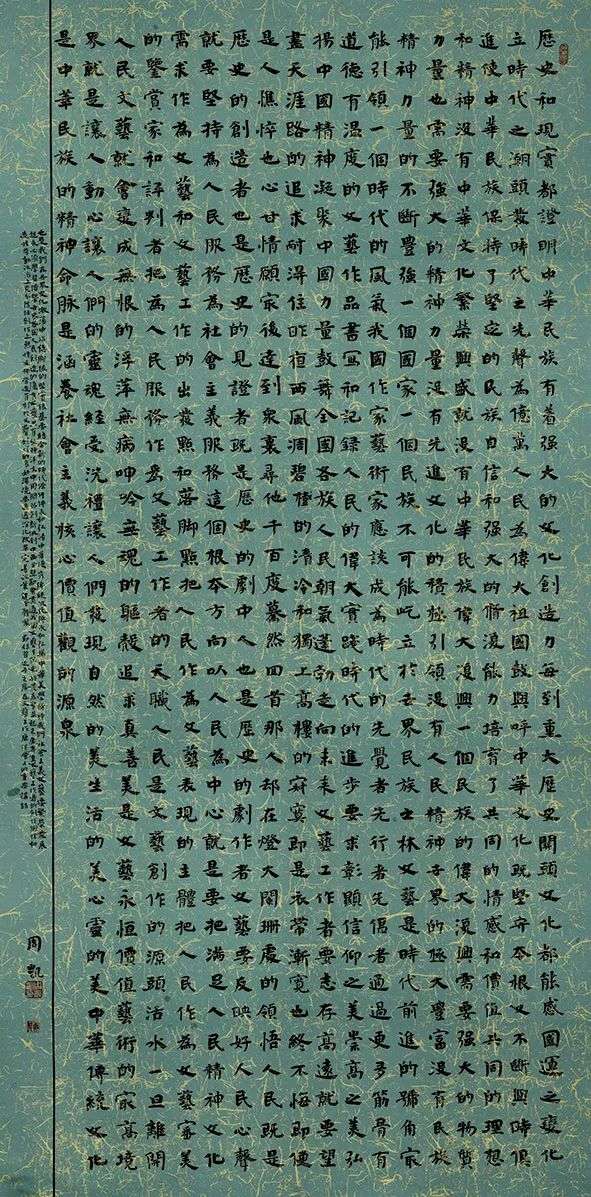 歷史和現實都證明中華民族有着強大的文化創造力每到重大歷史關頭文化都能感國運之變化
立時代之潮頭發時代之先聲為億萬人民為偉大祖國鼓與呼中華文化既堅守本根又不斷與時俱
進使中華民族保持了堅定的民族自信和強大的脩復能力培育了共同的情感和價值共同的理想
和精神沒有中華文化繁榮興盛就沒有中華民族偉大復興一個民族的偉大復興需要強大的物質
力量也需要強大的精神力量沒有先進文化的積極引領沒有人民精神世界的極大豐富沒有民族
精神力量的不斷豐強一個國家一個民族不可能屹立於世界民族之林文藝是時代前進的號角最
能引領一個時代的風氣我國作家藝術家應該成為時代的先覺者先行者先倡者通過更多筋骨有
道德有溫度的文藝作品書寫和記錄人民的偉大實踐時代的進步要求彰顯信仰之美崇高之美弘
揚中國精神凝聚中國力量鼓舞全國各族人民朝氣蓬勃走向未來文藝工作者要志存高遠就要望
盡天涯路的追求耐得住昨夜西風凋碧樹的清冷和獨上高樓的寂寞即是衣帶漸寬也終不悔即便
是人憔悴也心甘情願最後達到眾裏尋他千百度驀然回首那人却在燈火闌珊處的領悟人民既是
歷史的創造者也是歷史的見證者既是歷史的劇中人也是歷史的劇作者文藝要反映好人民心聲
就要堅持為人民服務為社會主義服務這個根本方向以人民為中心就是要把滿足人民精神文化
需求作為文藝和文藝工作的出發點和落脚點把人民作為文藝表現的主體把人民作為文藝審美
的鑒賞家和評判者把為人民服務作為文藝工作者的天職人民是文藝創作的源頭活水一旦離開
人民文藝就會變成無根的浮萍無病呻吟無魂的軀殼追求真善美是文藝永恒價值藝術的最高境
界就是讓人動心讓人們的靈魂經受洗禮讓人們發現自然的美生活的美心靈的美中華傳統文化
是中華民族的精神命脈是涵養社會主義核心價值觀的源泉
周凱